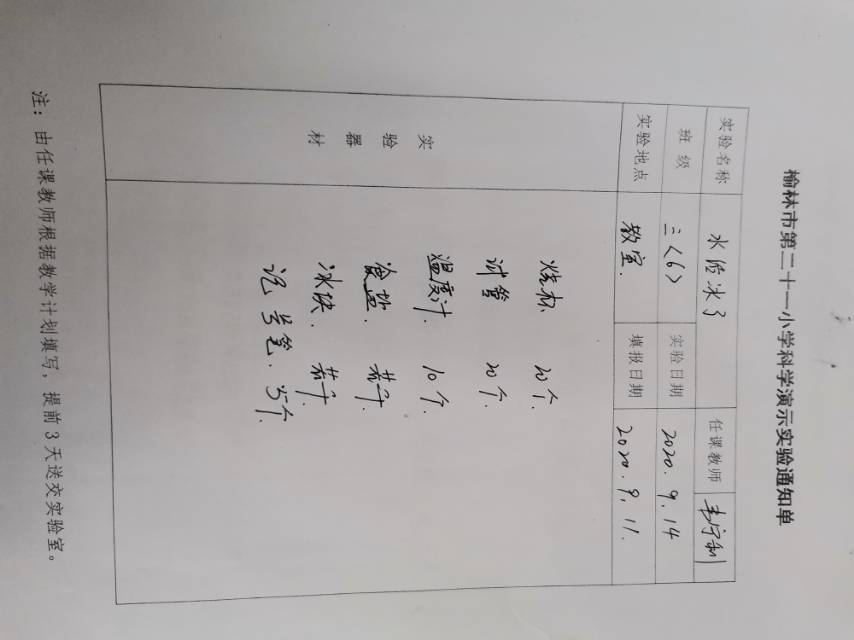 榆林市第二十一小学科学演示实验通知单
实验名称 水结冰了 任课教师
班级 三〈6〉 实验日期 2020.9.14
实验地点 教室. 填报日期 2020.9.11.
实验器材
烧杯 20个.
试管 20个.
温度计. 10个.
食盐. 若干.
冰块. 若干.
记号笔. 5个.
注：由任课教师根据教学计划填写，提前3天送交实验室。